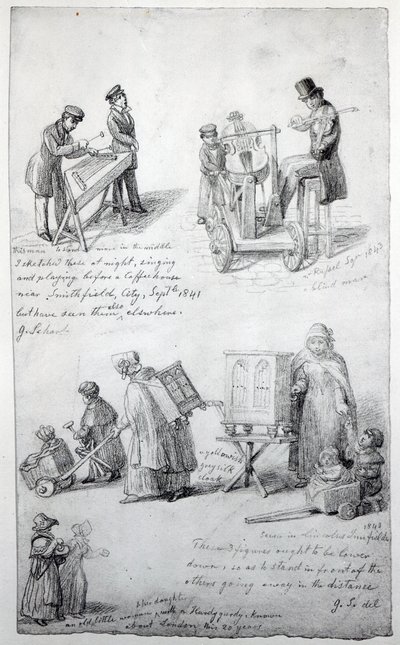 This man to be more in the middle
I sketched these at night, singing
and playing before a Coffee house
near Smithfield, City, Septr 1841
but have seen them also elsewhere.
G. Scharf
Russel Sqr 184
blind man
gold
grey silk
cloak
1843
seen in Lincolns Inn fields
These 3 figures ought to be lower
down, so as to stand in front of the
others going away in the distance
G. S. del
blue daughter
an old little woman with a Hurdygurdy, known
about London this 20 years